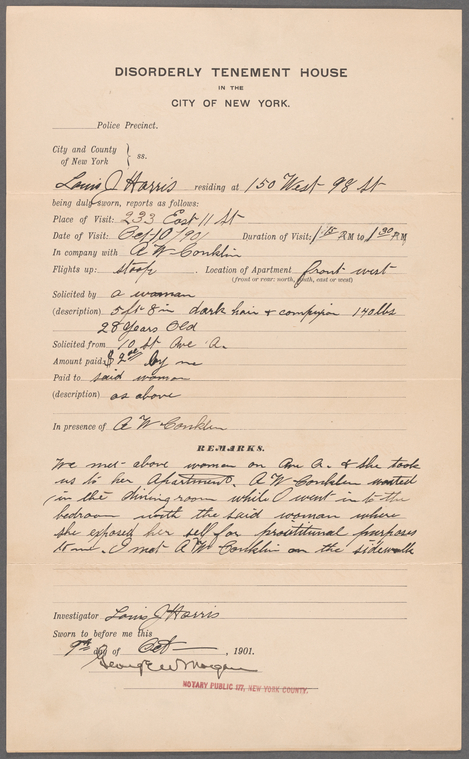 DISORDERLY TENEMENT HOUSE
IN THE
CITY OF NEW YORK.
Police Precinct.
City and County
of New York } ss.
Louis J Harris residing at 150 West 98 St
being duly sworn, reports as follows:
Place of Visit: 233 East 11 St
Date of Visit: Oct 10/901 Duration of Visit: 1.15 P.M to 1 30 P.M
In company with A W Conklin
Flights up: stoop Location of Apartment front west
(front or rear: north, south, east or west)
Solicited by a woman
(description) 5 ft 8 in dark hair & compexion 140 lbs
28 Years Old
Solicited from 10 St Ave A.
Amount paid: $2 00 by me
Paid to said woman
(description) as above
In presence of A W Conklin
REMARKS.
We met above woman on Ave A. & she took
us to her Apartment. A W Conklin waited
in the dining room while I went in to the
bedroom with the said woman where
she exposed her self for prostitutional purposes
to me. I met A W Conklin on the sidewalk
Investigator Louis J Harris
Sworn to before me this
9th day of Oct , 1901.
George W Morgan
NOTARY PUBLIC 177, NEW YORK COUNTY.